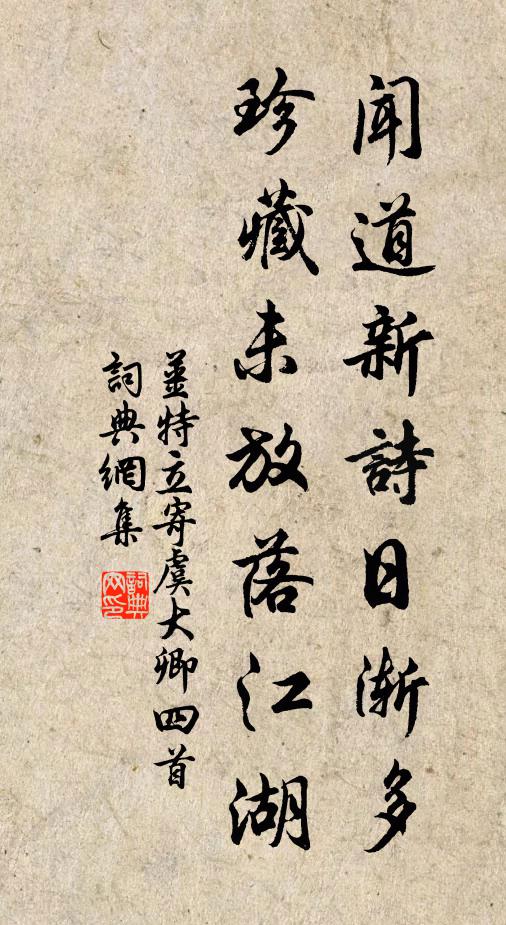 聞道新詩日漸多
珍藏未放落江湖
薑特立寄虞大卿四首
詞典網集
詞典网印